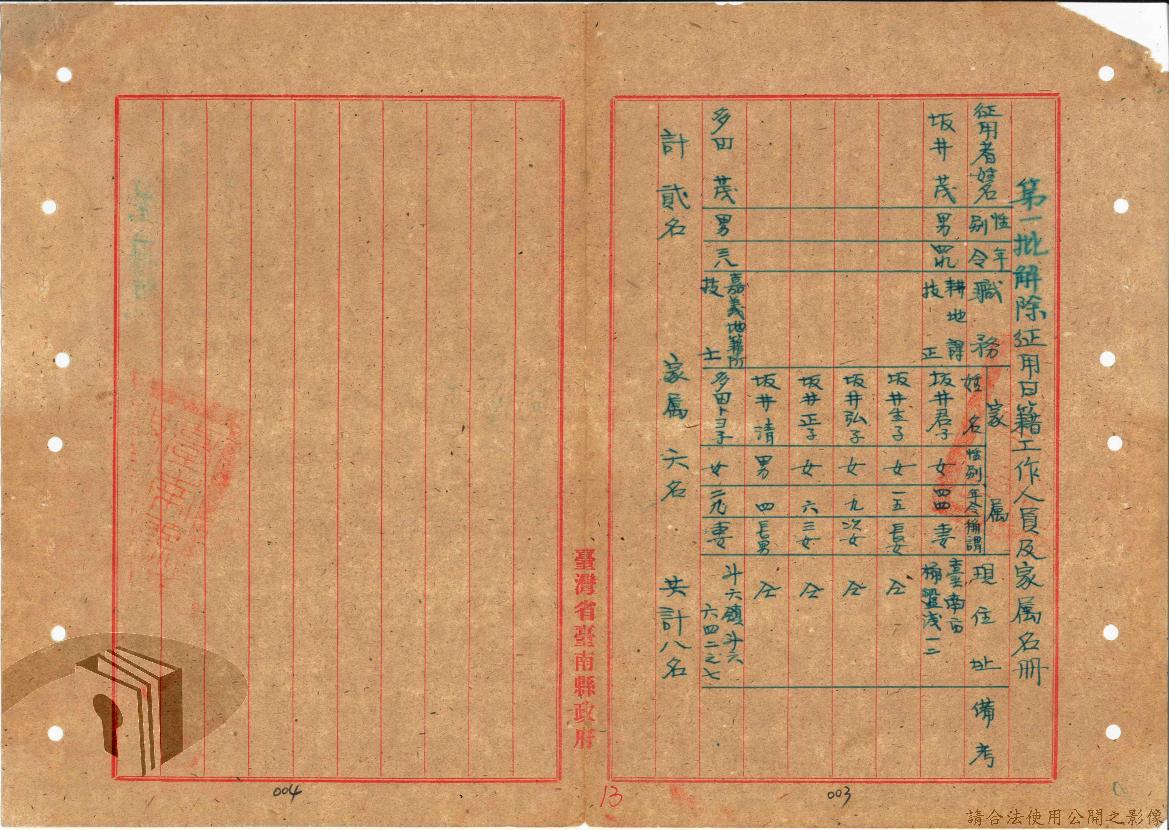 第一批解除征用日籍工作人員及家属名冊
征用者姓名
性別
年令
職務
家属
姓名
性別
年令
稱謂
現住址
備考
坂井茂
男
耕地課
技正
坂井君子
女
四四
妻
臺南市
桶盤浅一二
坂井生子
女
一五
長女
仝
坂井弘子
女
九
次女
仝
坂井正子
女
六
三女
仝
坂井清
男
四
長男
仝
多田茂
男
三八
嘉義地籍所
技士
多田トヨ子
女
二九
妻
斗六鎮斗六
六四二之七
計貳名
家属六名
共計八名
臺灣省臺南縣政府
003
13
004
請合法使用公開之影像